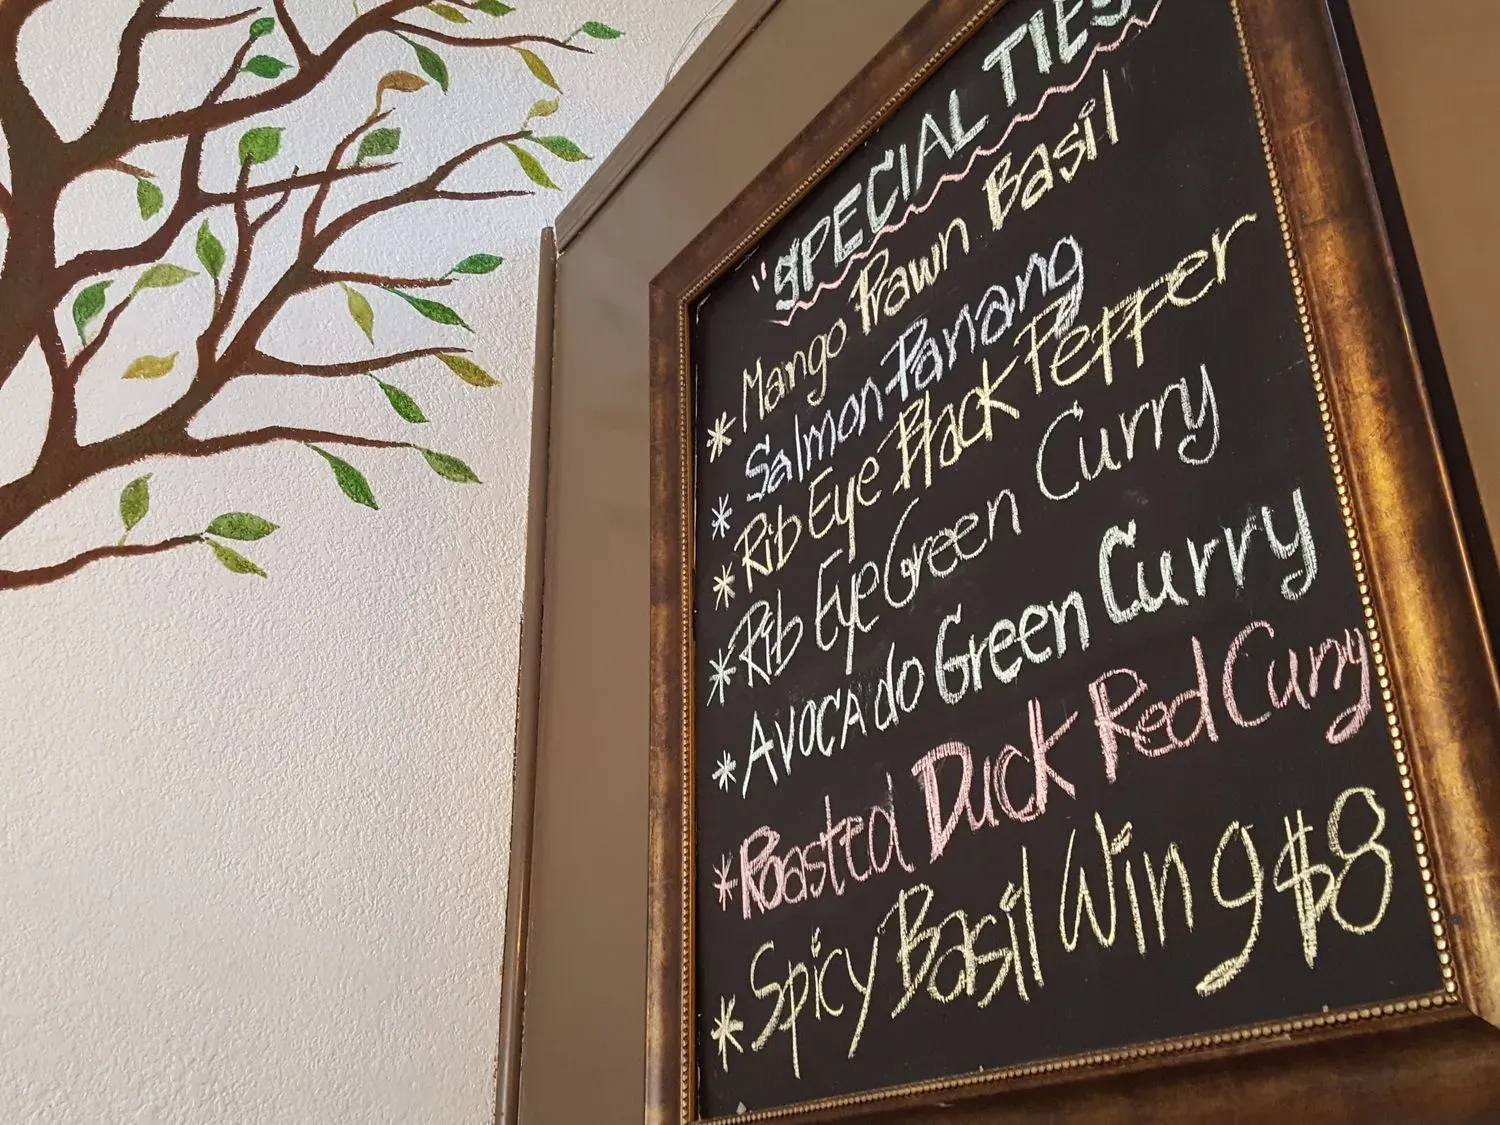 "SPECIALTIES
* Mango Prawn Basil
* Salmon Panang
* Rib Eye Black Pepper
* Rib Eye Green Curry
* AVOCAdo Green Curry
* Roasted Duck Red Curry
* Spicy Basil Wing $8